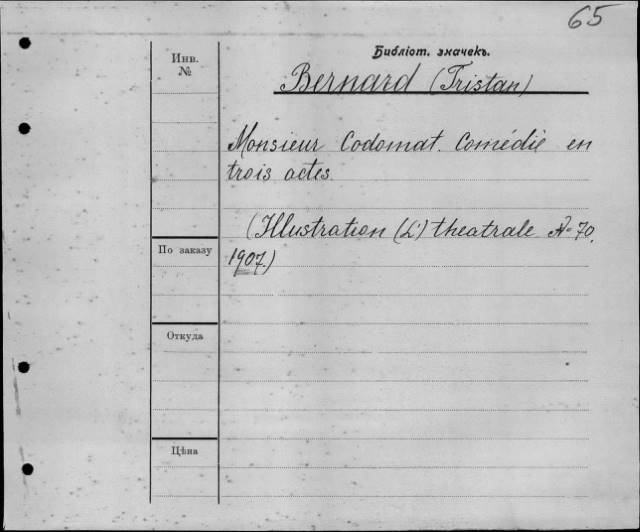 65
Библіот. значекъ.
Инв.
№
Bernard (Tristan)
Monsieur Codomat. Comédie en
trois actes.
(Illustration (L') theatrale № 70,
1907)
По заказу
Откуда
Цѣна